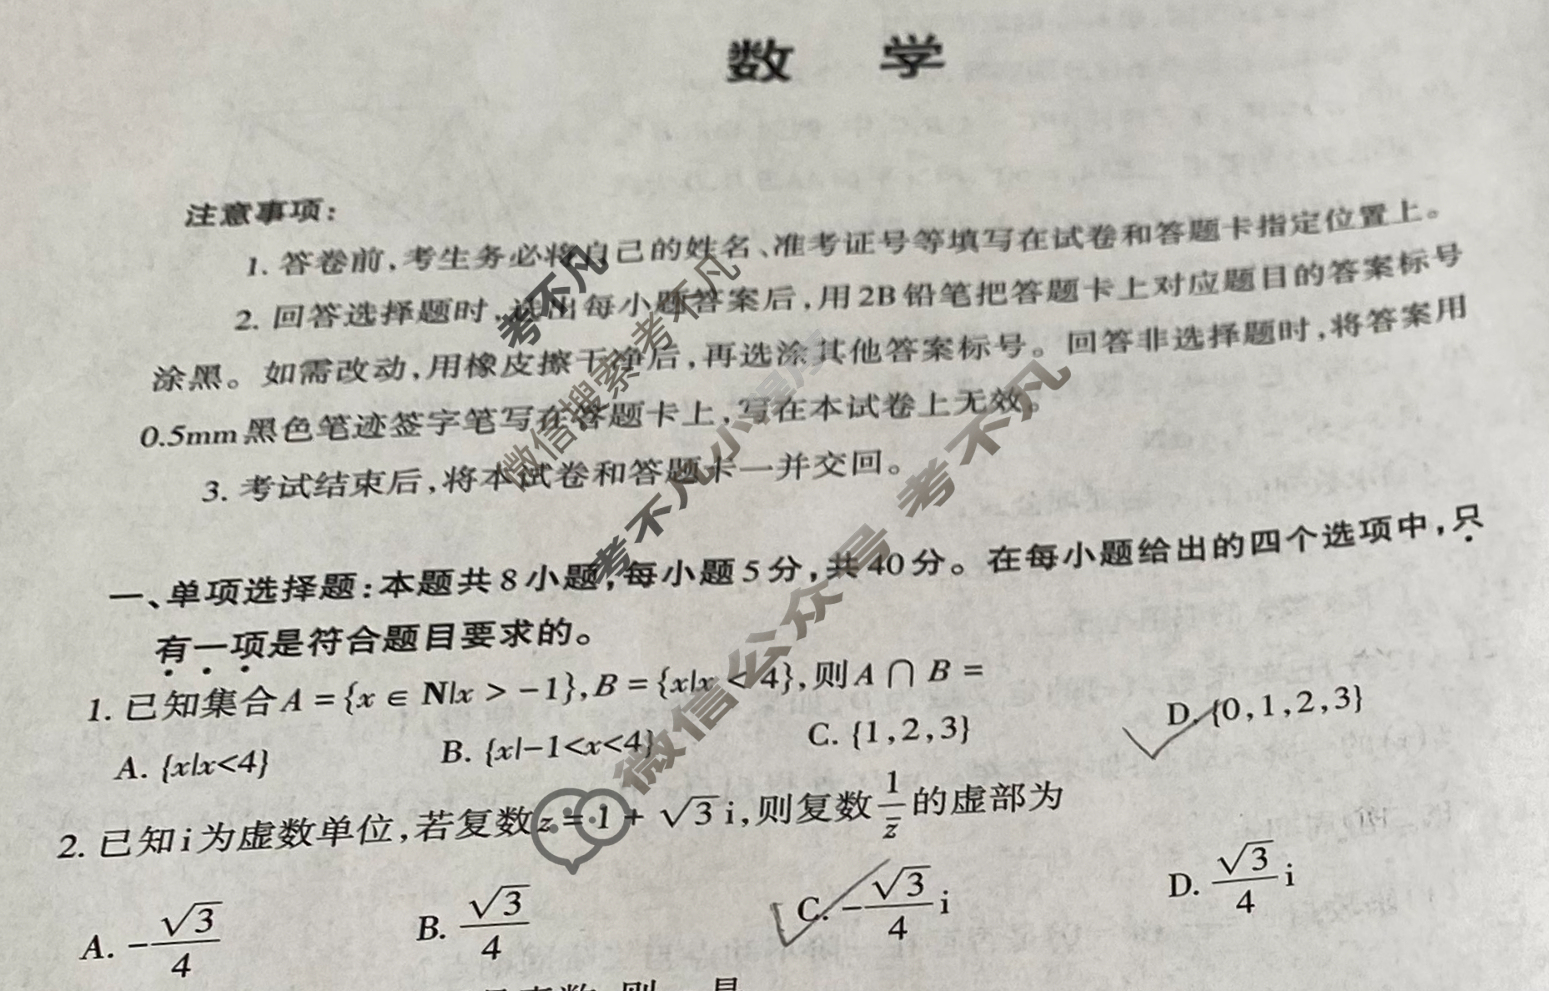 数 学
注意事项:
1. 答卷前,考生务必将自己的姓名、准考证号等填写在试卷和答题卡指定位置上。
2. 回答选择题时,选出每小题答案后,用2B铅笔把答题卡上对应题目的答案标号
涂黑。如需改动,用橡皮擦干净后,再选涂其他答案标号。回答非选择题时,将答案用
0.5mm黑色笔迹签字笔写在答题卡上,写在本试卷上无效。
3. 考试结束后,将本试卷和答题卡一并交回。
一、单项选择题:本题共8小题,每小题5分,共40分。在每小题给出的四个选项中,只
有一项是符合题目要求的。
1. 已知集合A={x∈N|x>-1},B={x|x<4},则A∩B=
A. {x|x<4} B. {x|-1<x<4} C. {1,2,3} D. {0,1,2,3}
2. 已知i为虚数单位,若复数z=1+√3i,则复数1/z̄的虚部为
A. -√3/4 B. √3/4 C. -√3/4 i D. √3/4 i
考不凡
微信搜索考不凡
考不凡小程序
微信公众号 考不凡